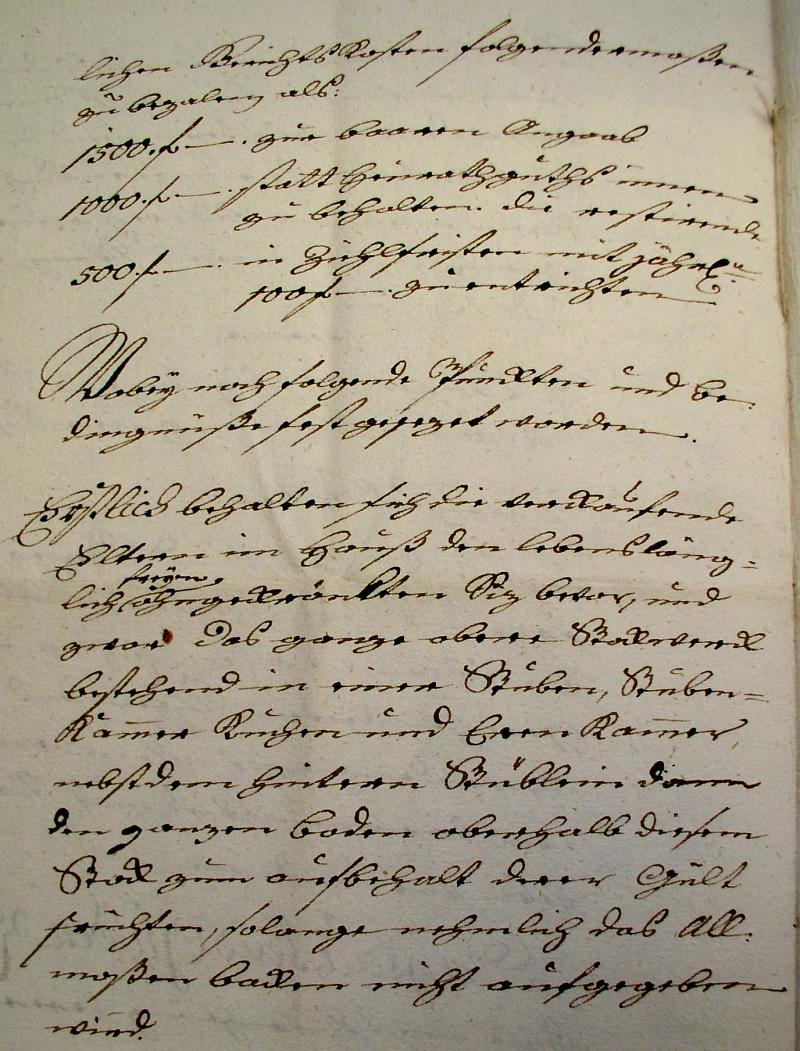 lichen Berichts Kosten folgendermaßen
zu bezalen als:
1500.f — . zur baaren Angaab
1000.f — . statt Heurathguths innen
zu behalten. die restirende
500.f — . in Zihlfristen mit jährl.
100f — . zu entrichten
Wobey noch folgende Puncten und be-
dingnüße fest gesezet worden.
Erstlich behalten sich die verkaufende
Eltern im Hauß den lebensläng=
freyen
lich ohngekränkten Siz bevor, und
zwar das ganze obere Stockwerck
bestehend in einer Stuben, Stuben=
Kam̄er Kuchen und Eeren Kam̄er,
nebst dem hintern Stüblein dann
den ganzen boden oberhalb diesem
Stock zum aufbehalt derer Gült
früchten, solange nehmlich das All-
moßen backen nicht aufgegeben
wird.